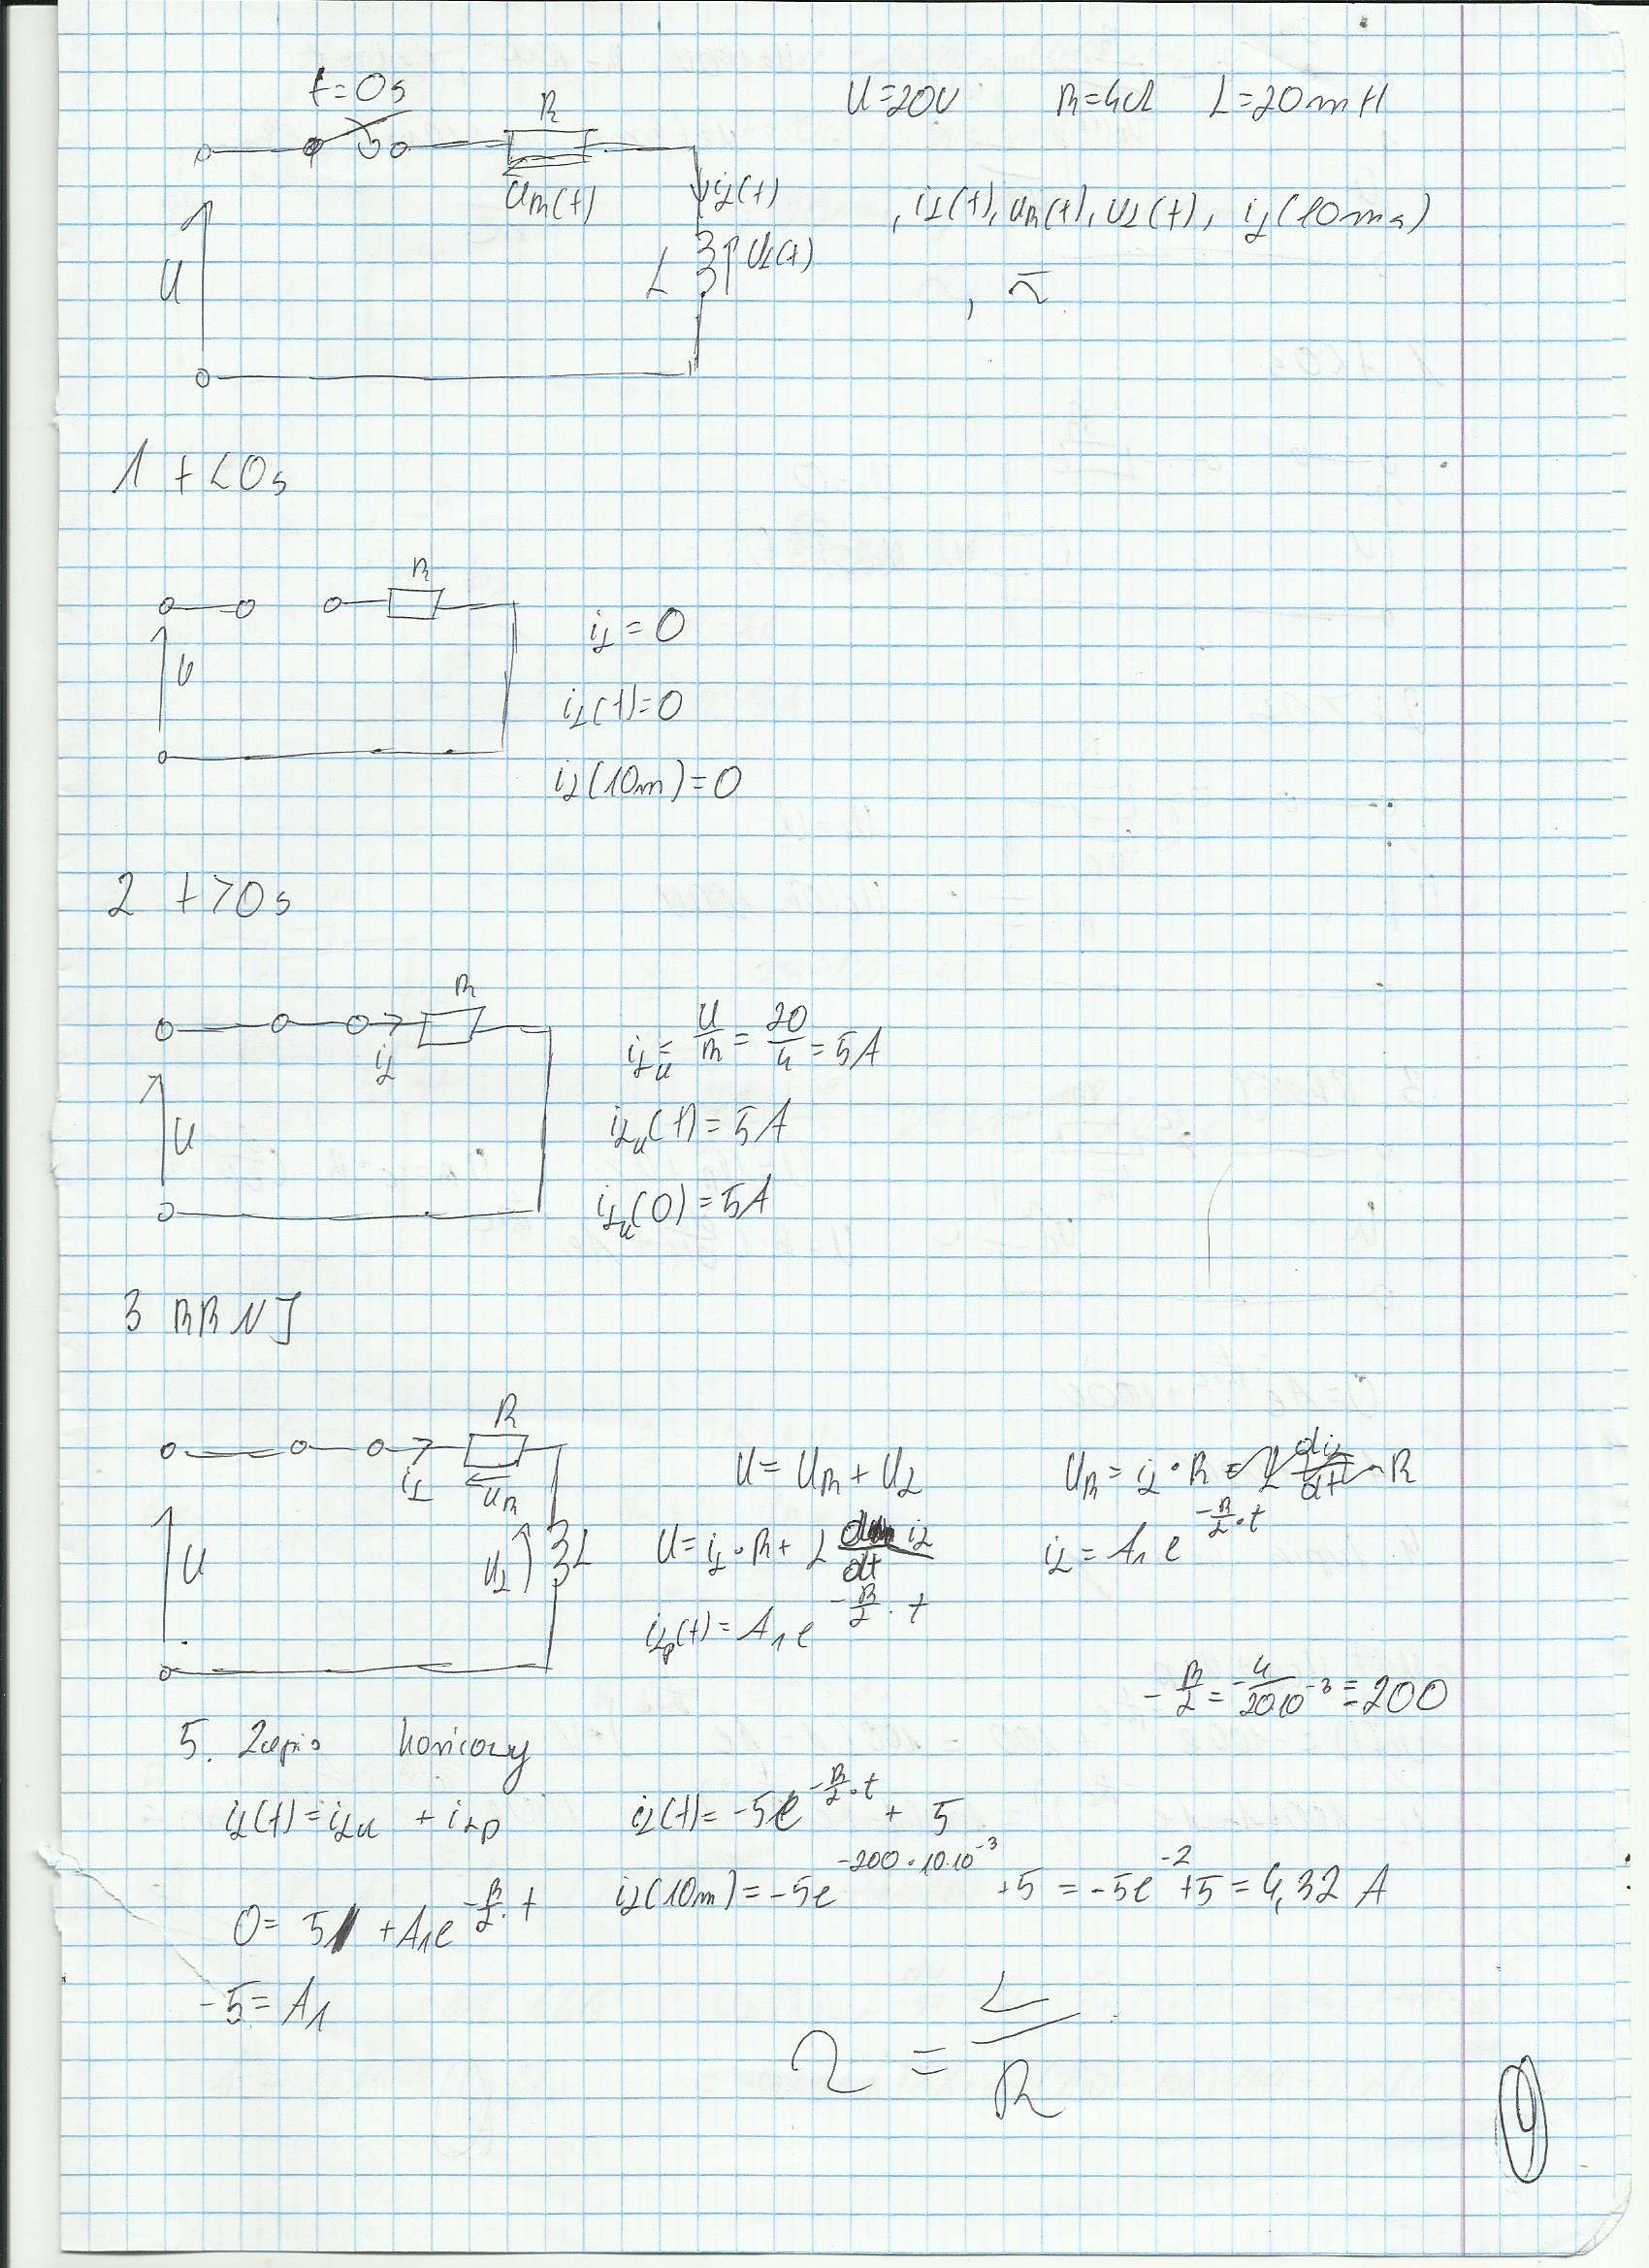 t=0s
R
U=20V R=4Ω L=20mH
u_R(t)
i_L(t)
, i_L(t), u_R(t), u_L(t), i_L(10ms)
U
L
u_L(t)
, τ
1 t<0s
R
U
i_L = 0
i_L(t)=0
i_L(10m)=0
2 t>0s
R
i_L
U
i_Lu = U/R = 20/4 = 5A
i_Lu(t) = 5A
i_Lu(0) = 5A
3 RRNJ
R
i_L
u_R
U
u_L
L
U = U_R + U_L
U_R = i_L · R = L di_L/dt · R
U = i_L · R + L di_L/dt
i_L = A₁ e^(-R/L · t)
i_Lp(t) = A₁ e^(-R/L · t)
-R/L = -4/20·10^-3 = 200
5. Zapis końcowy
i_L(t) = i_Lu + i_Lp
i_L(t) = -5e^(-R/L · t) + 5
0 = 5 + A₁e^(-R/L · t)
i_L(10m) = -5e^(-200·10·10^-3) + 5 = -5e^-2 + 5 = 4,32 A
-5 = A₁
τ = L/R